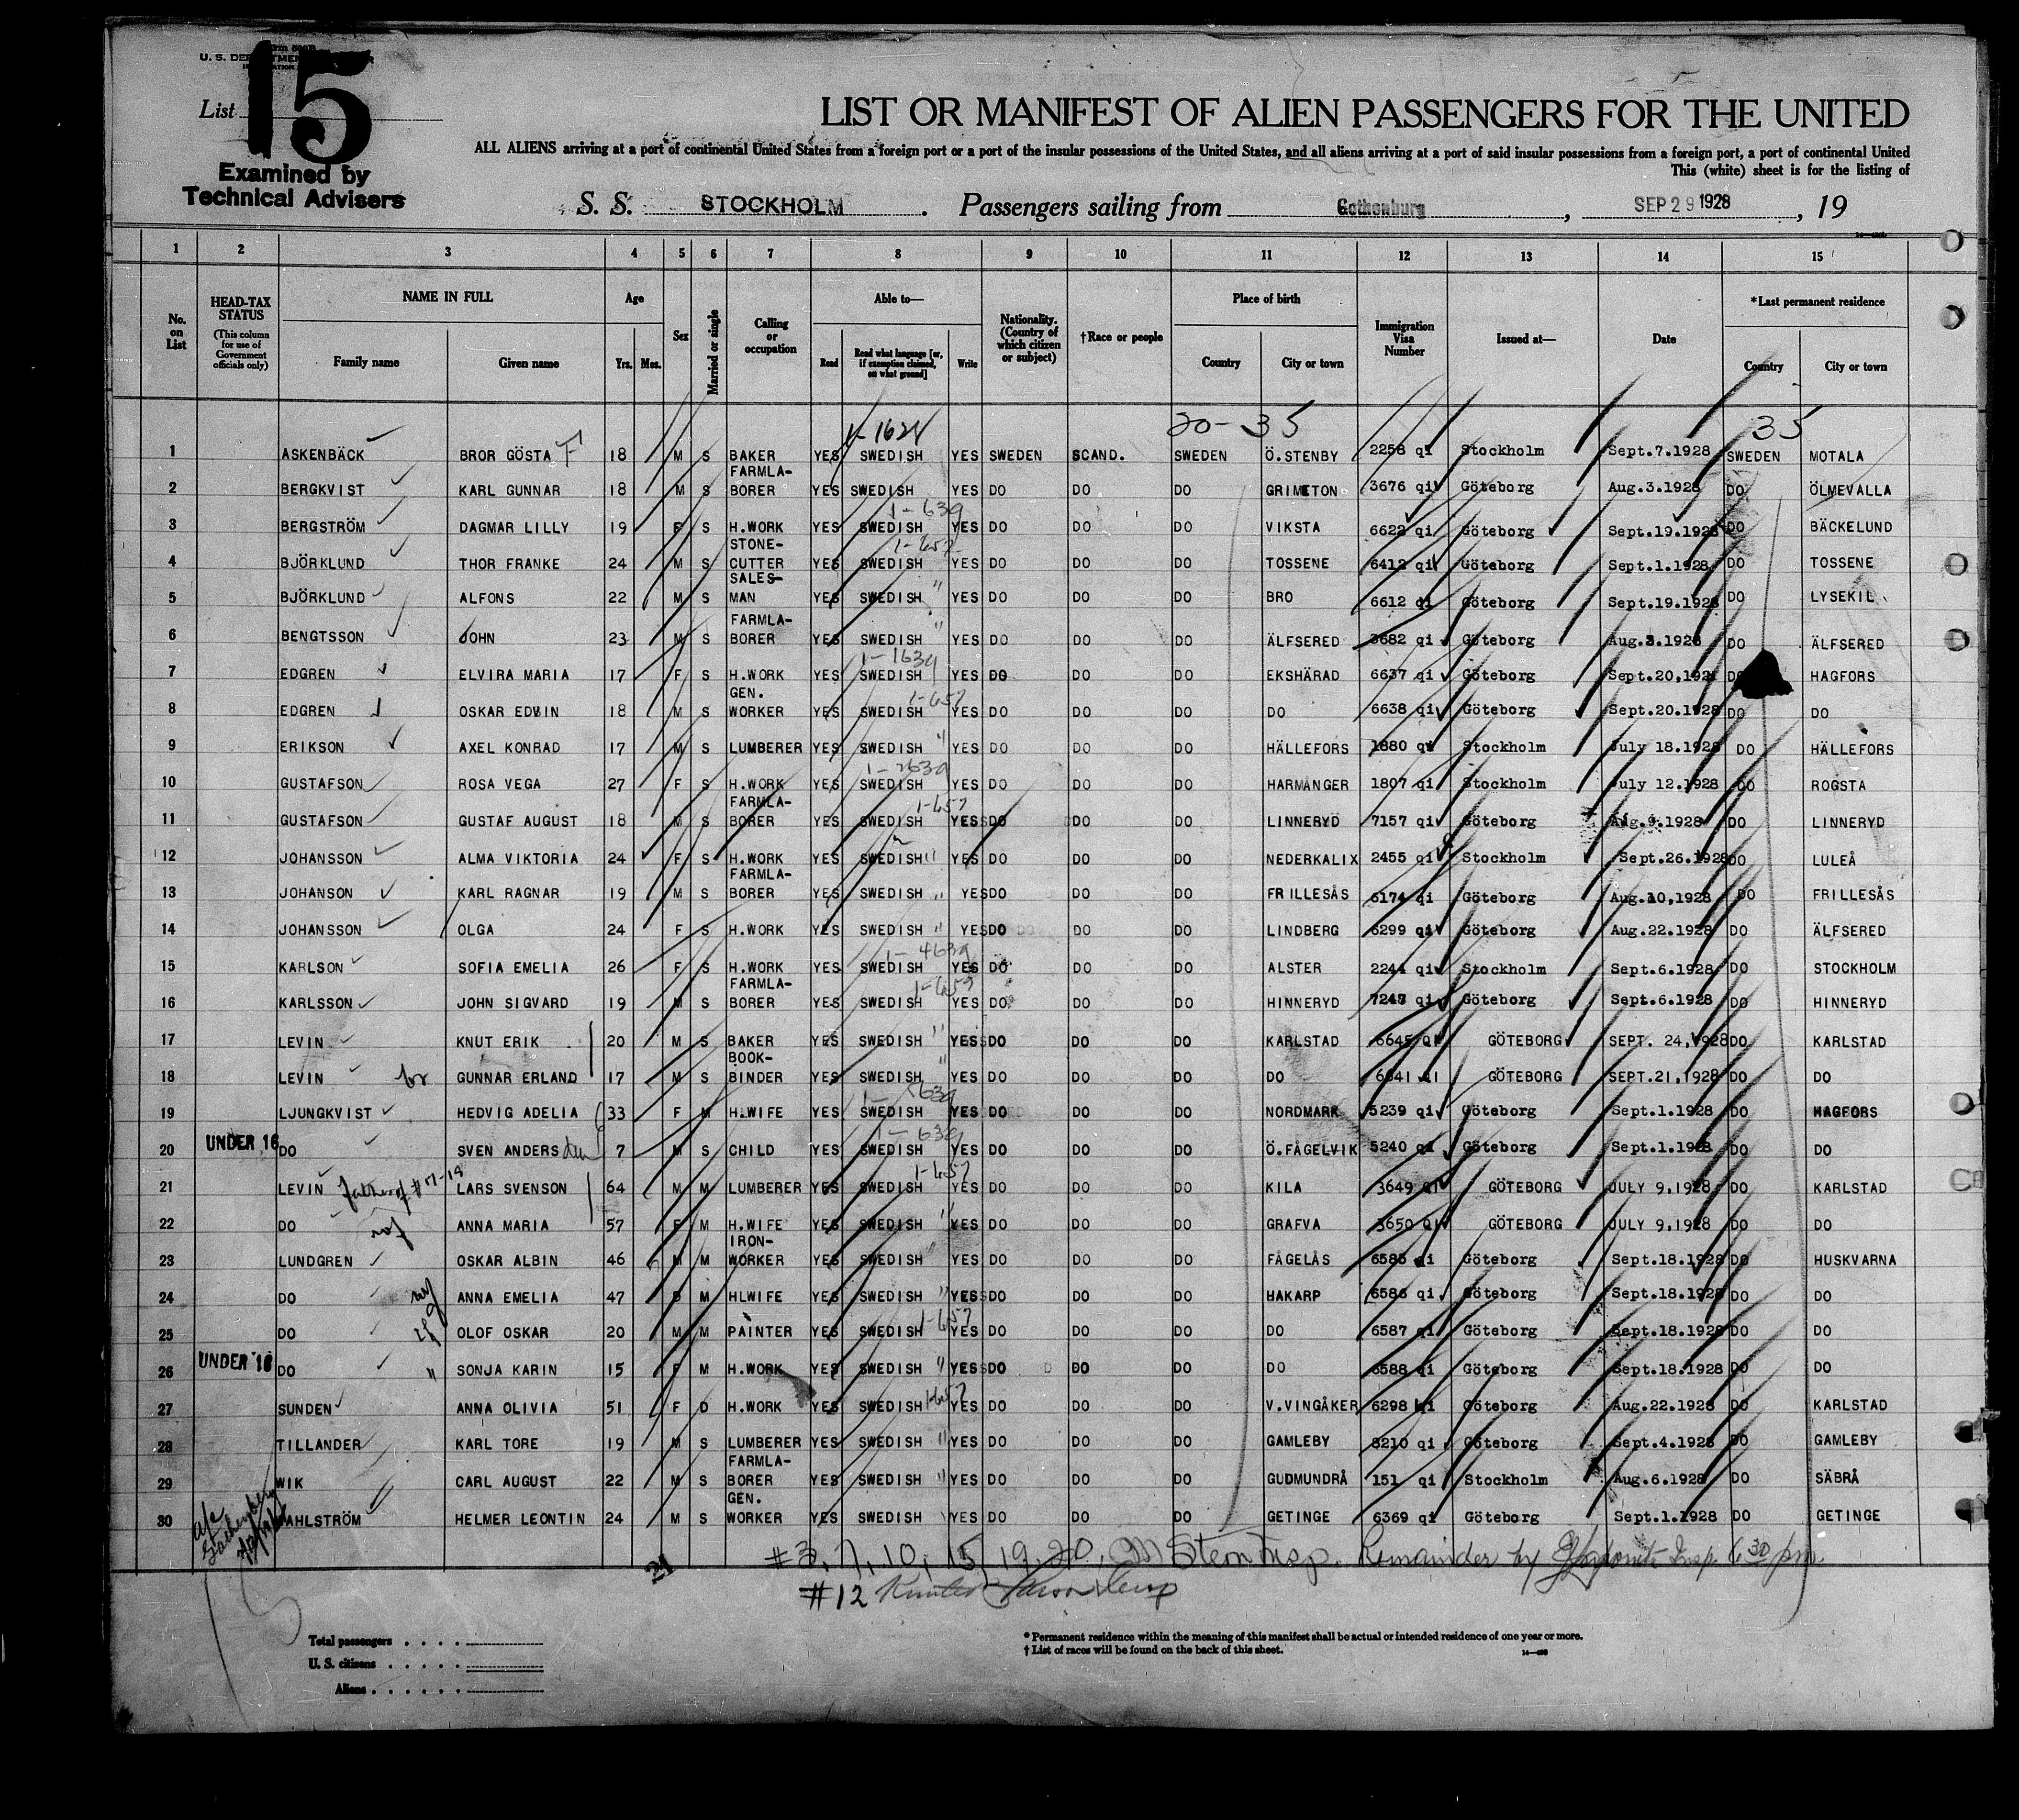 U. S. DEPARTMENT
List 15
Examined by
Technical Advisers
LIST OR MANIFEST OF ALIEN PASSENGERS FOR THE UNITED
ALL ALIENS arriving at a port of continental United States from a foreign port or a port of the insular possessions of the United States, and all aliens arriving at a port of said insular possessions from a foreign port, a port of continental United
This (white) sheet is for the listing of
S. S. STOCKHOLM. Passengers sailing from Gothenburg, SEP 29 1928, 19
1 2 3 4 5 6 7 8 9 10 11 12 13 14 15
No. on List
HEAD-TAX STATUS (This column for use of Government officials only)
NAME IN FULL Family name Given name
Age Yrs. Mos.
Sex
Married or single
Calling or occupation
Able to— Read Read what language [or, if exemption claimed, on what ground] Write
Nationality. (Country of which citizen or subject)
†Race or people
Place of birth Country City or town
Immigration Visa Number
Issued at—
Date
*Last permanent residence Country City or town
20-35 35
1 ASKENBÄCK BROR GÖSTA 18 M S BAKER YES SWEDISH YES SWEDEN SCAND. SWEDEN Ö.STENBY 2258 qi Stockholm Sept.7.1928 SWEDEN MOTALA
2 BERGKVIST KARL GUNNAR 18 M S FARMLA-BORER YES SWEDISH YES DO DO DO GRIMETON 3676 qi Göteborg Aug.3.1928 DO ÖLMEVALLA
3 BERGSTRÖM DAGMAR LILLY 19 F S H.WORK YES SWEDISH YES DO DO DO VIKSTA 6622 qi Göteborg Sept.19.1928 DO BÄCKELUND
4 BJÖRKLUND THOR FRANKE 24 M S STONE-CUTTER YES SWEDISH YES DO DO DO TOSSENE 6412 qi Göteborg Sept.1.1928 DO TOSSENE
5 BJÖRKLUND ALFONS 22 M S SALES-MAN YES SWEDISH " YES DO DO DO BRO 6612 qi Göteborg Sept.19.1928 DO LYSEKIL
6 BENGTSSON JOHN 23 M S FARMLA-BORER YES SWEDISH " YES DO DO DO ÄLFSERED 3682 qi Göteborg Aug.3.1928 DO ÄLFSERED
7 EDGREN ELVIRA MARIA 17 F S H.WORK YES SWEDISH YES DO DO DO EKSHÄRAD 6637 qi Göteborg Sept.20,192 DO HAGFORS
8 EDGREN OSKAR EDVIN 18 M S GEN. WORKER YES SWEDISH YES DO DO DO DO 6638 qi Göteborg Sept.20.1928 DO DO
9 ERIKSON AXEL KONRAD 17 M S LUMBERER YES SWEDISH " YES DO DO DO HÄLLEFORS 1880 qi Stockholm July 18.1928 DO HÄLLEFORS
10 GUSTAFSON ROSA VEGA 27 F S H.WORK YES SWEDISH YES DO DO DO HARMÅNGER 1807 qi Stockholm July 12.1928 DO ROGSTA
11 GUSTAFSON GUSTAF AUGUST 18 M S FARMLA-BORER YES SWEDISH YES DO DO DO LINNERYD 7157 qi Göteborg Aug.9.1928 DO LINNERYD
12 JOHANSSON ALMA VIKTORIA 24 F S H.WORK YES SWEDISH " YES DO DO DO NEDERKALIX 2455 qi Stockholm Sept.26.1928 DO LULEÅ
13 JOHANSON KARL RAGNAR 19 M S FARMLA-BORER YES SWEDISH " YES DO DO DO FRILLESÅS 6174 qi Göteborg Aug.10,1928 DO FRILLESÅS
14 JOHANSSON OLGA 24 F S H.WORK YES SWEDISH " YES DO DO DO LINDBERG 6299 qi Göteborg Aug.22.1928 DO ÄLFSERED
15 KARLSON SOFIA EMELIA 26 F S H.WORK YES SWEDISH YES DO DO DO ALSTER 2244 qi Stockholm Sept.6.1928 DO STOCKHOLM
16 KARLSSON JOHN SIGVARD 19 M S FARMLA-BORER YES SWEDISH YES DO DO DO HINNERYD 7247 qi Göteborg Sept.6.1928 DO HINNERYD
17 LEVIN KNUT ERIK 20 M S BAKER YES SWEDISH " YES DO DO DO KARLSTAD 6645 QI GÖTEBORG SEPT. 24,1928 DO KARLSTAD
18 LEVIN br GUNNAR ERLAND 17 M S BOOK-BINDER YES SWEDISH " YES DO DO DO DO 6641 QI GÖTEBORG SEPT.21,1928 DO DO
19 LJUNGKVIST HEDVIG ADELIA 33 F M H.WIFE YES SWEDISH YES DO DO DO NORDMARK 5239 qi Göteborg Sept.1.1928 DO HAGFORS
20 UNDER 16 DO SVEN ANDERS 7 M S CHILD YES SWEDISH YES DO DO DO Ö.FÅGELVIK 5240 qi Göteborg Sept.1.1928 DO DO
21 LEVIN Father of #17-18 LARS SVENSON 64 M M LUMBERER YES SWEDISH YES DO DO DO KILA 3649 QI GÖTEBORG JULY 9,1928 DO KARLSTAD
22 DO ANNA MARIA 57 F M H.WIFE YES SWEDISH " YES DO DO DO GRAFVA 3650 QI GÖTEBORG JULY 9,1928 DO DO
23 LUNDGREN OSKAR ALBIN 46 M M IRON-WORKER YES SWEDISH " YES DO DO DO FÅGELÅS 6585 qi Göteborg Sept.18.1928 DO HUSKVARNA
24 DO ANNA EMELIA 47 M HLWIFE YES SWEDISH " YES DO DO DO HAKARP 6586 qi Göteborg Sept.18.1928 DO DO
25 DO OLOF OSKAR 20 M M PAINTER YES SWEDISH YES DO DO DO DO 6587 qi Göteborg Sept.18.1928 DO DO
26 UNDER 16 DO " SONJA KARIN 15 F M H.WORK YES SWEDISH " YES DO DO DO DO 6588 qi Göteborg Sept.18.1928 DO DO
27 SUNDEN ANNA OLIVIA 51 F D H.WORK YES SWEDISH YES DO DO DO V.VINGÅKER 6298 qi Göteborg Aug.22.1928 DO KARLSTAD
28 TILLANDER KARL TORE 19 M S LUMBERER YES SWEDISH " YES DO DO DO GAMLEBY 8210 qi Göteborg Sept.4.1928 DO GAMLEBY
29 WIK CARL AUGUST 22 M S FARMLA-BORER YES SWEDISH " YES DO DO DO GUDMUNDRÅ 151 qi Stockholm Aug.6.1928 DO SÄBRÅ
30 AHLSTRÖM HELMER LEONTIN 24 M S GEN. WORKER YES SWEDISH YES DO DO DO GETINGE 6369 qi Göteborg Sept.1.1928 DO GETINGE
#3, 7, 10, 15, 19, 20, Stern Insp. Remainder by Insp. 6 30 pm.
#12
Total passengers
U. S. citizens
Aliens
* Permanent residence within the meaning of this manifest shall be actual or intended residence of one year or more.
† List of races will be found on the back of this sheet.